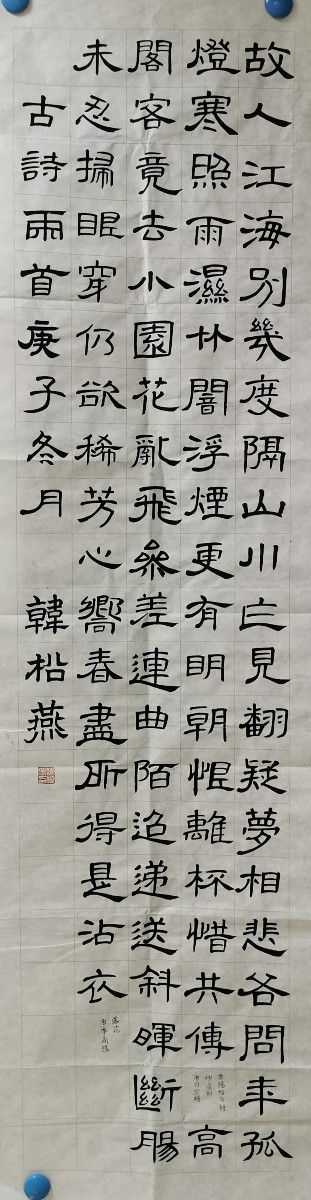 故人江海別幾度隔山川乍見翻疑夢相悲各問年孤
燈寒照雨濕竹闇浮煙更有明朝恨離杯惜共傳
唐司空曙
高
閣客竟去小園花亂飛參差連曲陌迢遞送斜暉斷腸
未忍掃眼穿仍欲稀芳心嚮春盡所得是沾衣
落花
唐李商隱
古詩兩首庚子冬月 韓松燕